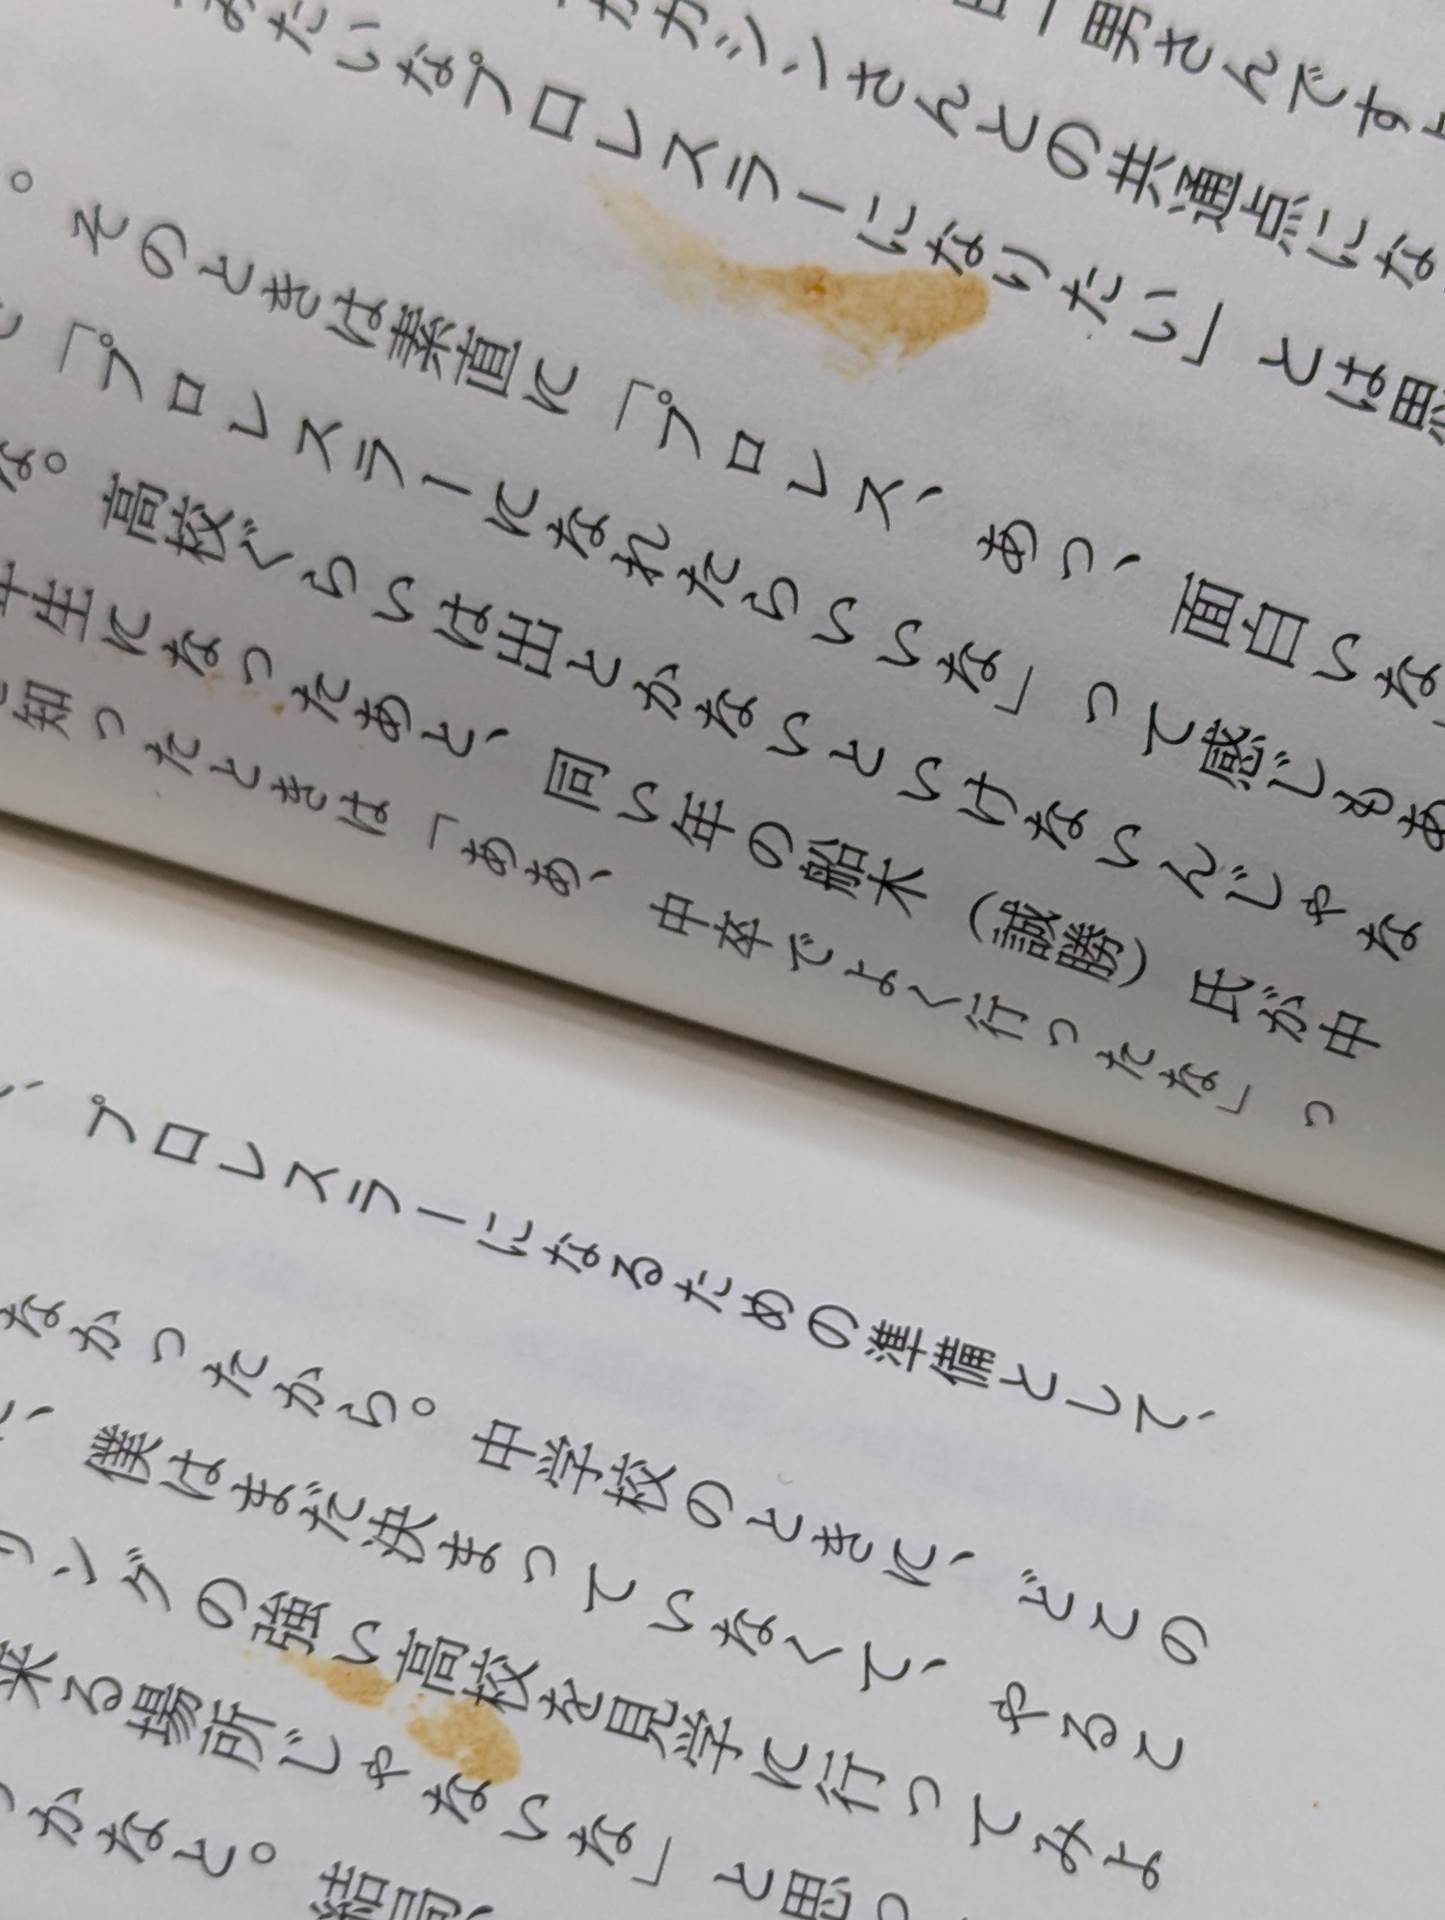 一男さんです
さんとの共通点にな
みたいなプロレスラーになりたい」とは思
。そのときは素直に「プロレス、あっ、面白いな
「プロレスラーになれたらいいな」って感じもあ
な。高校ぐらいは出とかないといけないんじゃな
年生になったあと、同い年の船木（誠勝）氏が中
知ったときは「ああ、中卒でよく行ったな」っ
、プロレスラーになるための準備として、
なかったから。中学校のときに、どこの
、僕はまだ決まっていなくて、やるこ
リングの強い高校を見学に行ってみよ
来る場所じゃないな」と思っ
かなと。結局、